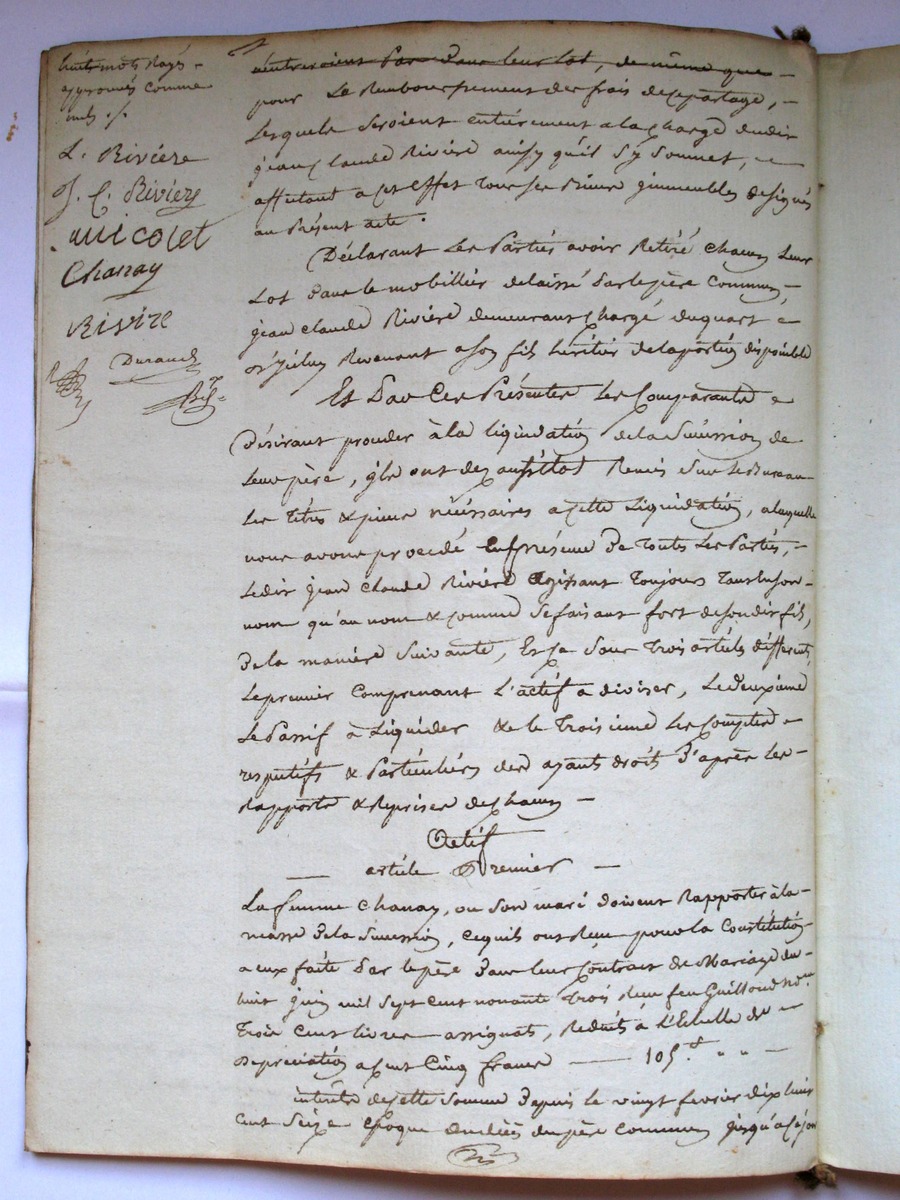 huit mots rayés
approuvés comme
nuls ./.
L. Rivière
J. C. Rivière
Nicolet
Chanay
Rivire
Duraud
n'entreroient pas dans leur lot, de même que
pour le Remboursement des frais de ce partage,
Lesquels seroient entièrement a la charge dudit
jean Claude Rivière ainsy qu'il s'y soumet,
affectant a cet effet tous ses biens immeubles designés
au Présent acte.
Déclarant Les Parties avoir Retiré chacun leur
Lot dans le mobillier delaissé par le père Commun,
jean claude Rivière demeurant chargé du quart
Revenant a son fils héritier de la portion disponible
Et Par Ces Présentes Les Comparants
Désirant proceder à la liquidation de la Succession de
Leur père, ils ont des aussitôt Remis sur le Bureau
Les titres & pièces nécessaires a cette Liquidation, a laquelle
nous avons procedé En présence De Toutes Les Parties,
Ledit jean Claude Rivière agissant Toujours Tant en son
nom qu'au nom & comme se faisant fort de son dit fils,
De la manière Suivante, Et ce sous trois articles différents,
Le premier Comprenant L'actif a diviser, Le deuxième
Le Passif à Liquider & le Troisieme Les Comptes
respectifs & Particuliers des ayants droits D'après les
Rapports & Reprises de chacun
Actif
article Premier
La femme Chanay, ou son mari doivent Rapporter à la
masse De la Succession, ce qu'ils ont Reçu pour la Constitution
a eux faite Par le père Dans leur Contrat de Mariage du
huit juin mil sept cent nonante trois Reçu feu Guilloud not.re
Trois Cents livres assignats, Réduits à L'Echelle de
Dépréciation a Cent Cinq francs 105.f " "
intérêts de cette Somme Depuis le vingt fevrier dix huit
cent Seize Epoque du décès du père commun jusqu'a ce jour